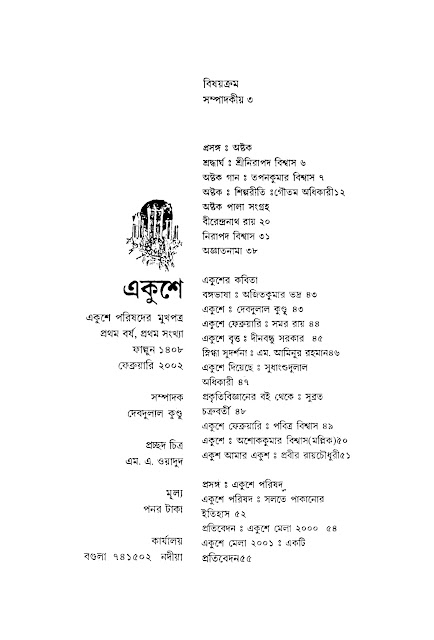 একুশে
একুশে পরিষদের মুখপত্র
প্রথম বর্ষ, প্রথম সংখ্যা
ফাল্গুন ১৪০৮
ফেব্রুয়ারি ২০০২
সম্পাদক
দেবদুলাল কুণ্ডু
প্রচ্ছদ চিত্র
এম. এ. ওয়াদুদ
মূল্য
পনর টাকা
কার্যালয়
বগুলা ৭৪১৫০২ নদীয়া
বিষয়ক্রম
সম্পাদকীয় ৩
প্রসঙ্গ ঃ অষ্টক
শ্রদ্ধার্ঘ ঃ শ্রীনিরাপদ বিশ্বাস ৬
অষ্টক গান ঃ তপনকুমার বিশ্বাস ৭
অষ্টক ঃ শিল্পরীতি ঃগৌতম অধিকারী১২
অষ্টক পালা সংগ্রহ
বীরেন্দ্রনাথ রায় ২০
নিরাপদ বিশ্বাস ৩১
অজ্ঞাতনামা ৩৮
একুশের কবিতা
বঙ্গভাষা ঃ অজিতকুমার ভদ্র ৪৩
একুশে ঃ দেবদুলাল কুণ্ডু ৪৩
একুশে ফেব্রুয়ারি ঃ সমর রায় ৪৪
একুশে বৃত্ত ঃ দীনবন্ধু সরকার ৪৫
স্নিগ্ধা সুদর্শনা ঃ এম. আমিনুর রহমান৪৬
একুশে দিয়েছে ঃ সুধাংশুদুলাল
অধিকারী ৪৭
প্রকৃতিবিজ্ঞানের বই থেকে ঃ সুব্রত
চক্রবর্তী ৪৮
একুশে ফেব্রুয়ারি ঃ পবিত্র বিশ্বাস ৪৯
একুশে ঃ অশোককুমার বিশ্বাস(মল্লিক)৫০
একুশ আমার একুশ ঃ প্রবীর রায়চৌধুরী৫১
প্রসঙ্গ ঃ একুশে পরিষদ
একুশে পরিষদ ঃ সলতে পাকানোর
ইতিহাস ৫২
প্রতিবেদন ঃ একুশে মেলা ২০০০ ৫৪
একুশে মেলা ২০০১ ঃ একটি
প্রতিবেদন৫৫